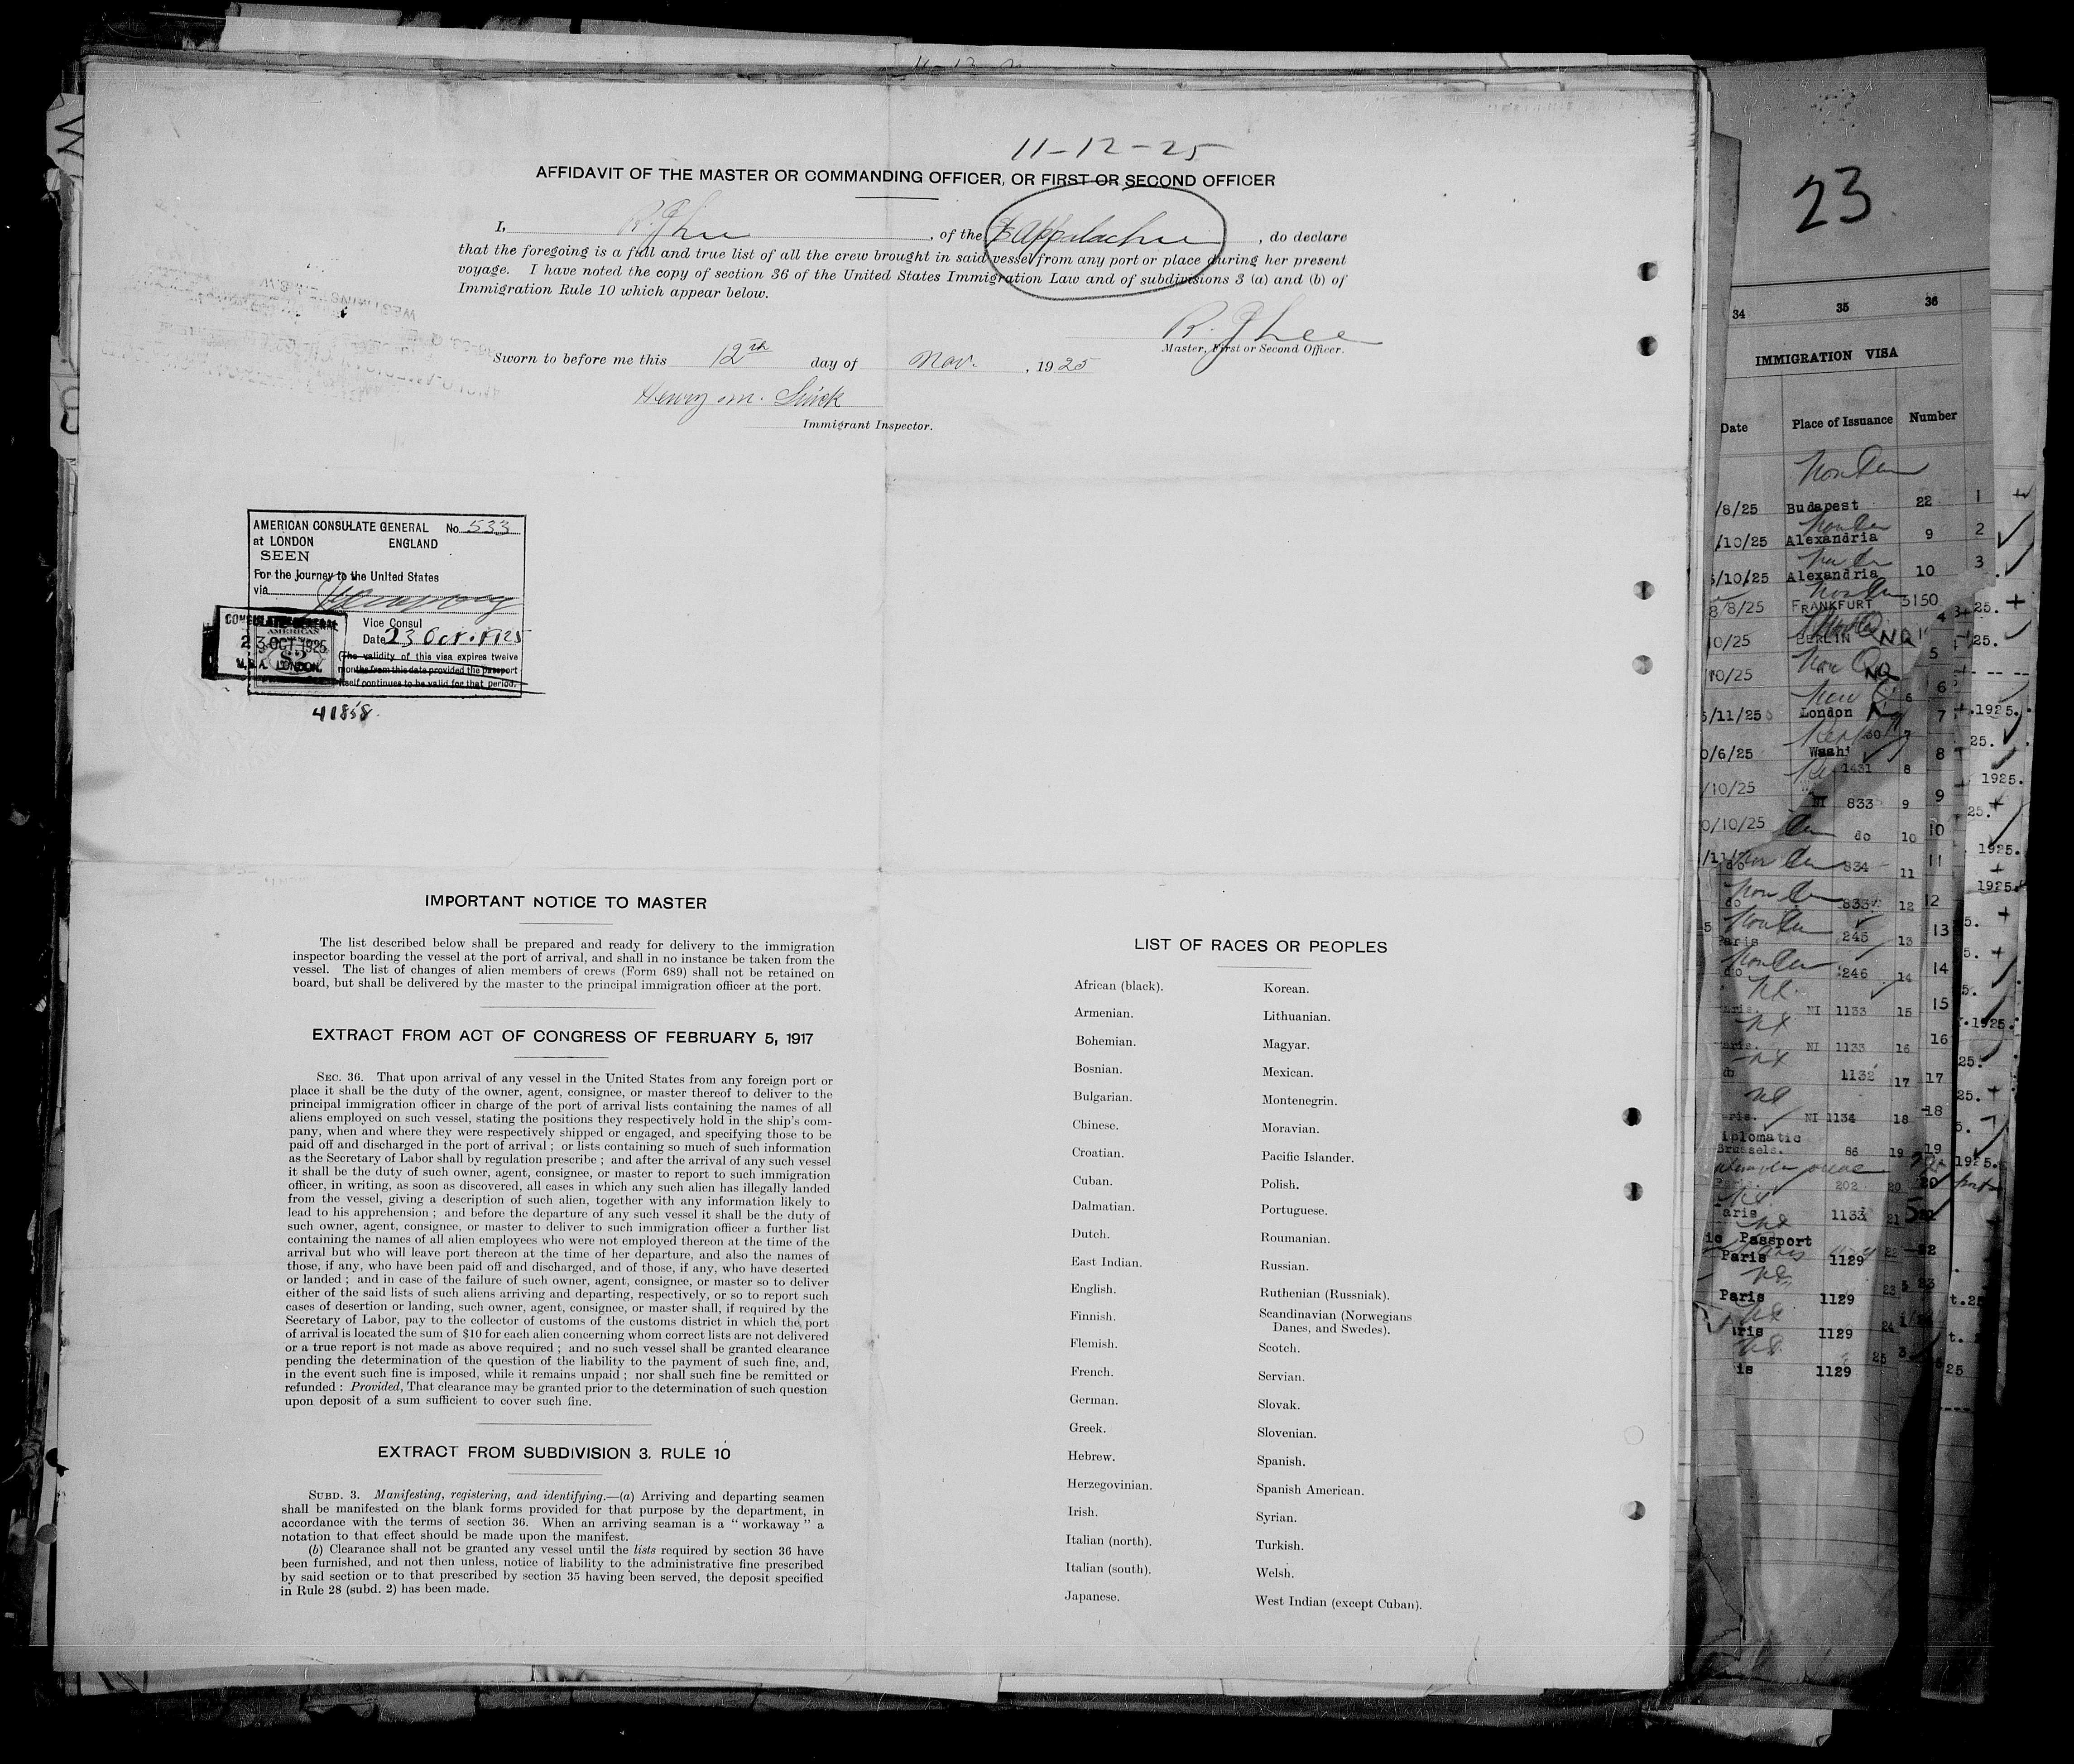 11-12-25
AFFIDAVIT OF THE MASTER OR COMMANDING OFFICER, OR FIRST OR SECOND OFFICER
I, R. J. Lee, of the Appalachee, do declare
that the foregoing is a full and true list of all the crew brought in said vessel from any port or place during her present
voyage. I have noted the copy of section 36 of the United States Immigration Law and of subdivisions 3 (a) and (b) of
Immigration Rule 10 which appear below.
R. J. Lee
Master, First or Second Officer.
Sworn to before me this 12th day of Nov., 1925
Henry M.
Immigrant Inspector.
AMERICAN CONSULATE GENERAL No. 533
at LONDON ENGLAND
SEEN
For the journey to the United States
via
Vice Consul
Date 23 Oct. 1925
(The validity of this visa expires twelve
months from this date provided the passport
itself continues to be valid for that period.
CONSULATE GENERAL
AMERICAN
23 OCT. 1925
$2
U.S.A. LONDON.
41858.
IMPORTANT NOTICE TO MASTER
The list described below shall be prepared and ready for delivery to the immigration
inspector boarding the vessel at the port of arrival, and shall in no instance be taken from the
vessel. The list of changes of alien members of crews (Form 689) shall not be retained on
board, but shall be delivered by the master to the principal immigration officer at the port.
EXTRACT FROM ACT OF CONGRESS OF FEBRUARY 5, 1917
SEC. 36. That upon arrival of any vessel in the United States from any foreign port or
place it shall be the duty of the owner, agent, consignee, or master thereof to deliver to the
principal immigration officer in charge of the port of arrival lists containing the names of all
aliens employed on such vessel, stating the positions they respectively hold in the ship's com-
pany, when and where they were respectively shipped or engaged, and specifying those to be
paid off and discharged in the port of arrival; or lists containing so much of such information
as the Secretary of Labor shall by regulation prescribe; and after the arrival of any such vessel
it shall be the duty of such owner, agent, consignee, or master to report to such immigration
officer, in writing, as soon as discovered, all cases in which any such alien has illegally landed
from the vessel, giving a description of such alien, together with any information likely to
lead to his apprehension; and before the departure of any such vessel it shall be the duty of
such owner, agent, consignee, or master to deliver to such immigration officer a further list
containing the names of all alien employees who were not employed thereon at the time of the
arrival but who will leave port thereon at the time of her departure, and also the names of
those, if any, who have been paid off and discharged, and of those, if any, who have deserted
or landed; and in case of the failure of such owner, agent, consignee, or master so to deliver
either of the said lists of such aliens arriving and departing, respectively, or so to report such
cases of desertion or landing, such owner, agent, consignee, or master shall, if required by the
Secretary of Labor, pay to the collector of customs of the customs district in which the port
of arrival is located the sum of $10 for each alien concerning whom correct lists are not delivered
or a true report is not made as above required; and no such vessel shall be granted clearance
pending the determination of the question of the liability to the payment of such fine, and,
in the event such fine is imposed, while it remains unpaid; nor shall such fine be remitted or
refunded: Provided, That clearance may be granted prior to the determination of such question
upon deposit of a sum sufficient to cover such fine.
EXTRACT FROM SUBDIVISION 3. RULE 10
SUBD. 3. Manifesting, registering, and identifying.—(a) Arriving and departing seamen
shall be manifested on the blank forms provided for that purpose by the department, in
accordance with the terms of section 36. When an arriving seaman is a "workaway" a
notation to that effect should be made upon the manifest.
(b) Clearance shall not be granted any vessel until the lists required by section 36 have
been furnished, and not then unless, notice of liability to the administrative fine prescribed
by said section or to that prescribed by section 35 having been served, the deposit specified
in Rule 28 (subd. 2) has been made.
LIST OF RACES OR PEOPLES
African (black).
Armenian.
Bohemian.
Bosnian.
Bulgarian.
Chinese.
Croatian.
Cuban.
Dalmatian.
Dutch.
East Indian.
English.
Finnish.
Flemish.
French.
German.
Greek.
Hebrew.
Herzegovinian.
Irish.
Italian (north).
Italian (south).
Japanese.
Korean.
Lithuanian.
Magyar.
Mexican.
Montenegrin.
Moravian.
Pacific Islander.
Polish.
Portuguese.
Roumanian.
Russian.
Ruthenian (Russniak).
Scandinavian (Norwegians
Danes, and Swedes).
Scotch.
Servian.
Slovak.
Slovenian.
Spanish.
Spanish American.
Syrian.
Turkish.
Welsh.
West Indian (except Cuban).
23
34 35 36
IMMIGRATION VISA
Date Place of Issuance Number
/8/25 Budapest 22 1
/10/25 Alexandria 9 2
/10/25 Alexandria 10 3
8/8/25 FRANKFURT 3150 4
0/25 BERLIN NQ 5
10/25 NQ 6
/11/25 London 7
0/6/25 Wash 8
/10/25 1431 8
NI 833 9 9
0/10/25 do 10 10
do 834 11 11
do 833 12 12
Paris 245 13 13
do 246 14 14
NI 1133 15 15
NI 1133 16 16
do 1132 17 17
NI 1134 18 18
iplomatic
Brussels. 86 19 19
202 20 20
aris 1133 21
ic Passport
Paris 1129
Paris 1129 23 23
aris 1129 24
is 1129 25